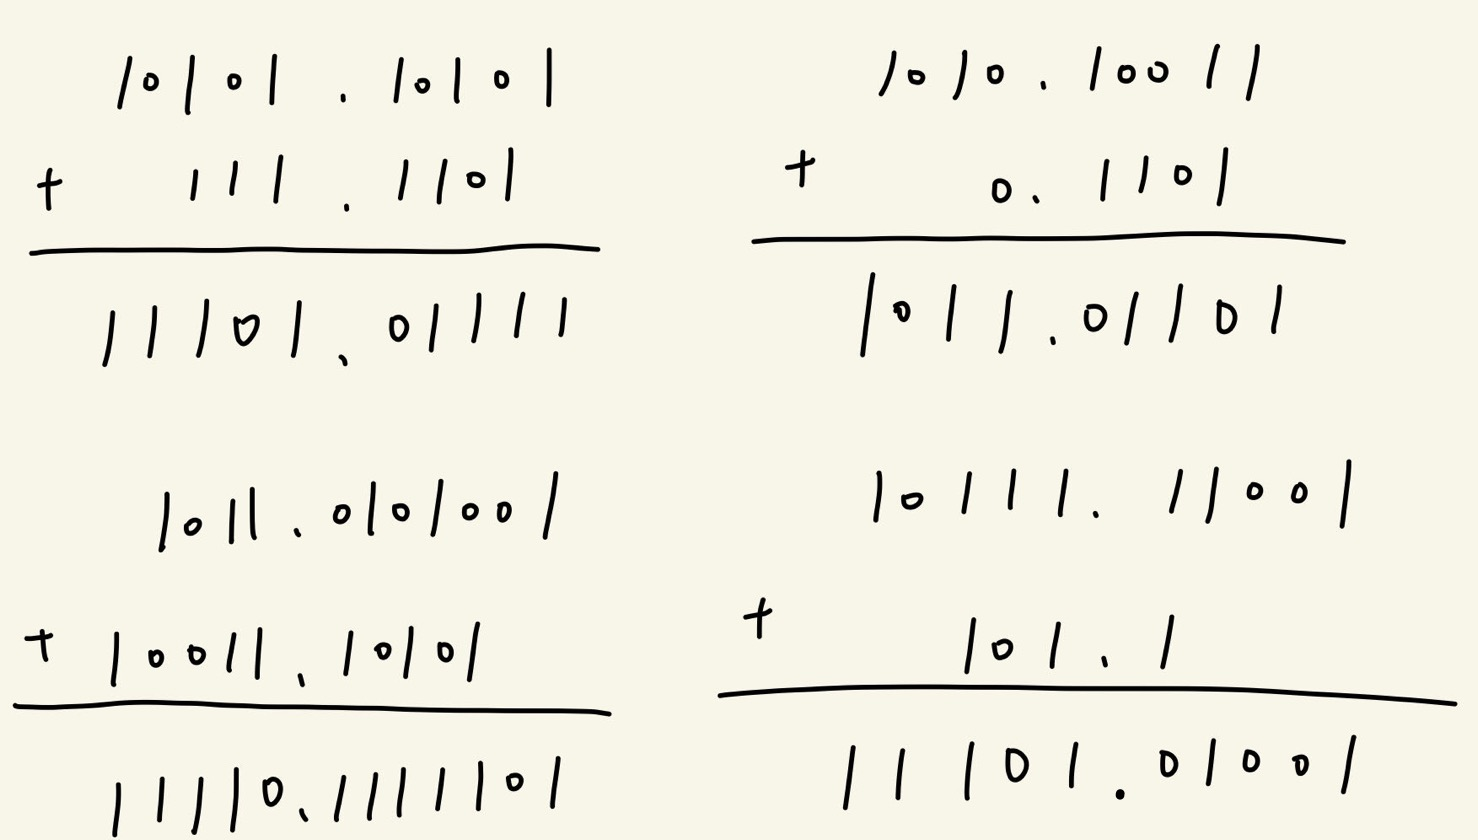 10101.10101
+ 111.1101
11101.01111
1010.10011
+ 0.1101
1011.01101
1011.0101001
+ 10011.10101
11110.1111101
10111.11001
+ 101.1
11101.01001